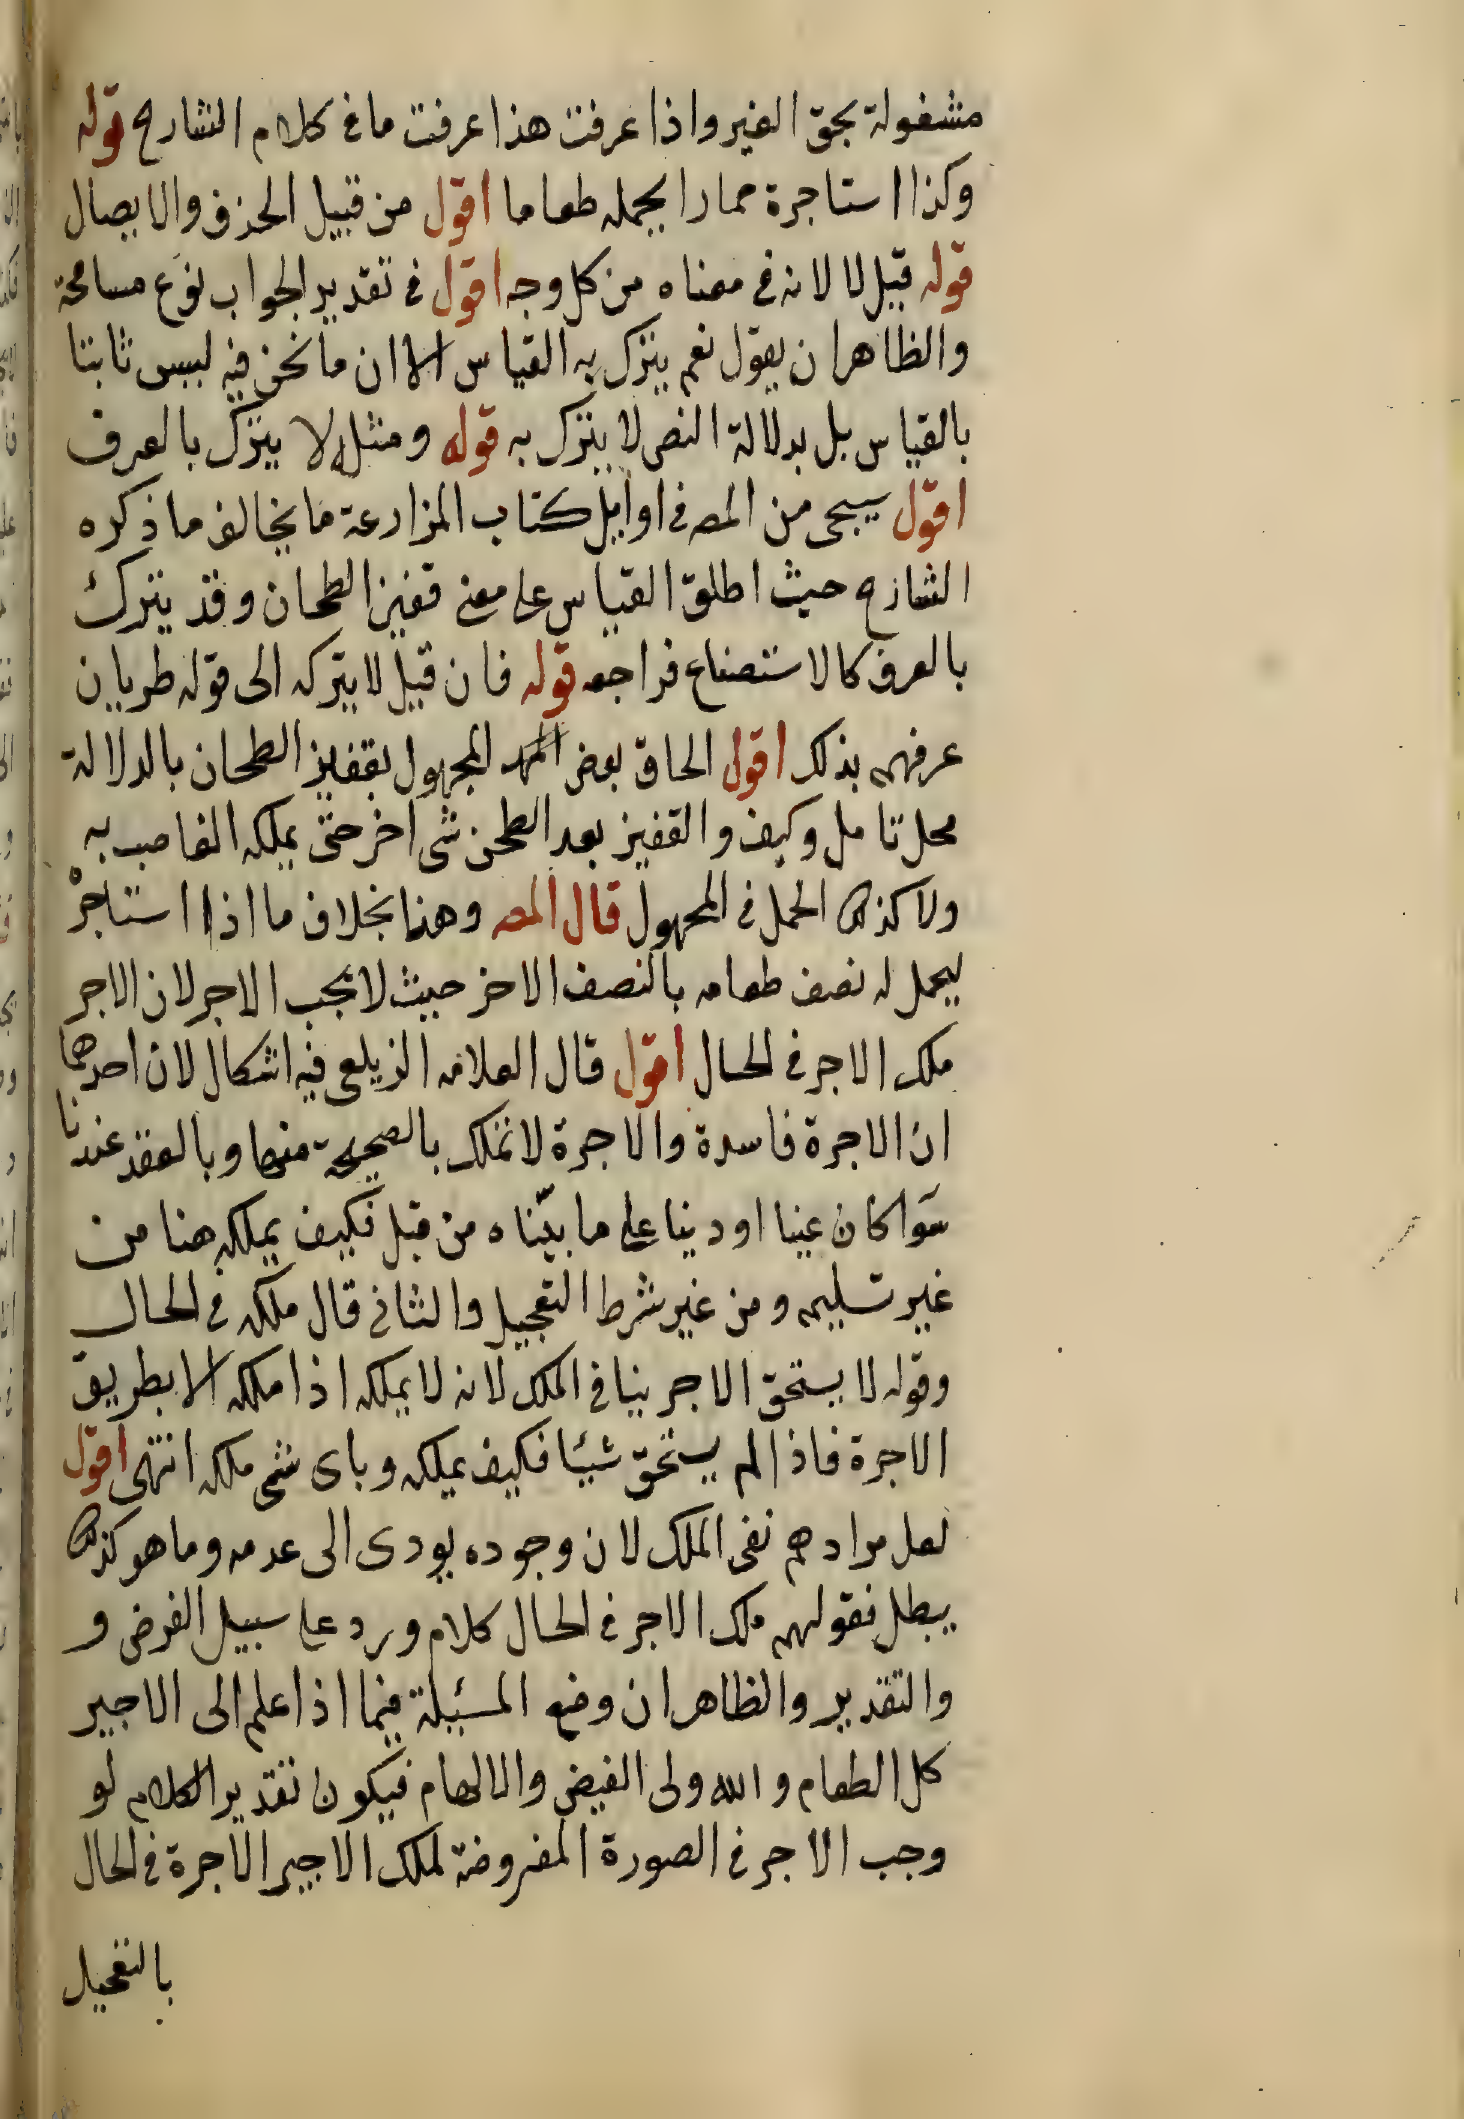 مشغولة بحق الغير واذا عرفت هذا عرفت ما فى كلام الشارح قوله
وكذا استاجرة حمارا يحمله طعاما اقول من قبيل الحذف والايصال
قوله قيل لا لانه فى معناه من كل وجه اقول فى تقدير الجواب نوع مسامحة
والظاهر ان يقول نعم يترك به القياس الا ان ما نحن فيه ليس ثابتا
بالقياس بل بدلالة النص لا يترك به قوله ومثله لا يترك بالعرف
اقول سيجى من المص فى اوايل كتاب المزارعة ما يخالف ما ذكره
الشارح حيث اطلق القياس على معنى قفيز الطحان وقد يترك
بالعرف كالاستصناع فراجعه قوله فان قيل لا يتركه الى قوله طريان
عرفهم بذلك اقول الحاق بعض المجهول بقفيز الطحان بالدلالة
محل تامل وكيف والقفيز بعد الطحن شى اخر حتى يملكه الغاصب به
ولا كذلك الحمل فى المحمول قال المص وهذا بخلاف ما اذا استاجر
ليحمل له نصف طعامه بالنصف الاخر حيث لا يجب الاجر لان الاجر
ملك الاجر فى الحال اقول قال العلامه الزيلعى فيه اشكال لان احدهما
ان الاجرة فاسدة والاجرة لا تملك بالصحيحة منها وبالعقد عندنا
سوا كان عينا او دينا على ما بيناه من قبل فكيف يملكه هنا من
غير تسليم ومن غير شرط التعجيل والثانى قال ملكه فى الحال
وقوله لا يستحق الاجر ينافى الملك لانه لا يملكه اذا ملكه الا بطريق
الاجرة فاذا لم يستحق شيئا فكيف يملكه وباى شى ملكه انتهى اقول
لعل مرادهم نفى الملك لان وجوده يودى الى عدمه وما هو كذلك
يبطل فقولهم ملك الاجر فى الحال كلام ورد على سبيل الفرض و
والتقدير والظاهر ان وضع المسئلة فيما اذا علم الى الاجير
كل الطعام والله ولى الفيض والالهام فيكون تقدير الكلام لو
وجب الاجر فى الصورة المفروضة لملك الاجير الاجرة فى الحال
بالتعجيل